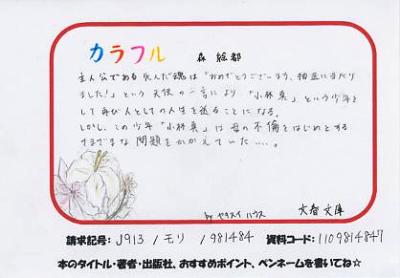 カラフル 森 絵都
主人公である死んだ魂は「おめでとうございます、抽選に当たり
ました!」という天使の一言により「小林真」という少年と
して再び人としての人生を送ることになる。
しかし、この少年「小林真」は母の不倫をはじめとする
さまざまな問題をかかえていた……。
by ヤキスイ ハウス 文春文庫
請求記号: J913 / モリ / 981484 資料コード: 1109814847
本のタイトル・著者・出版社、おすすめポイント、ペンネームを書いてね☆